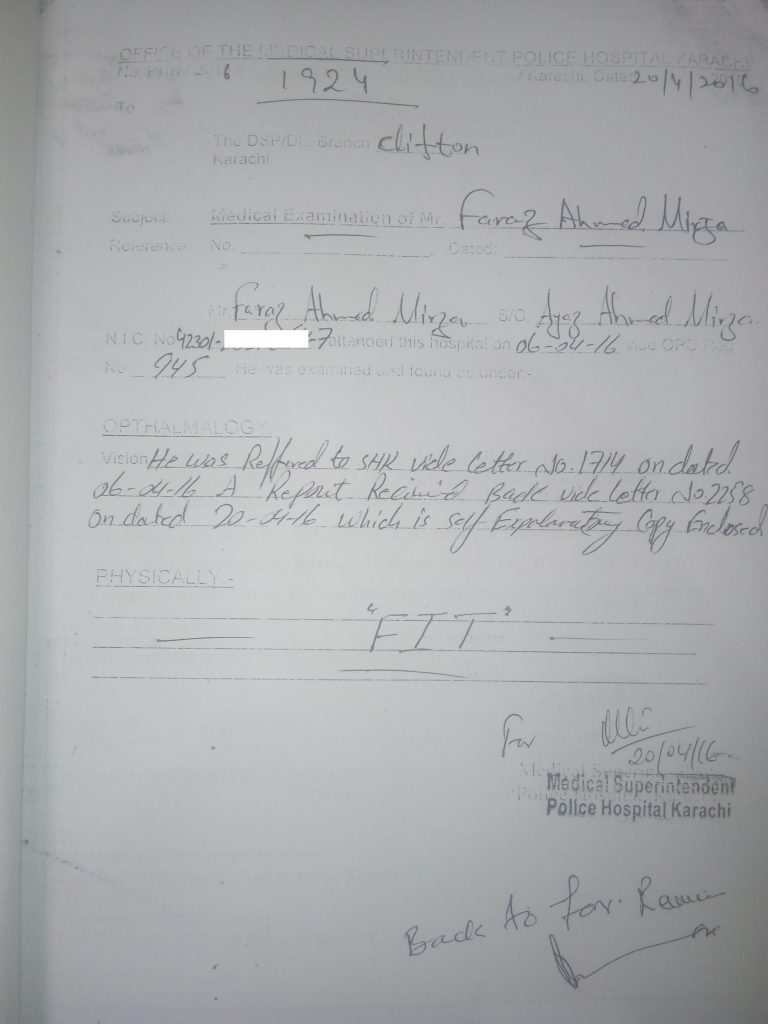 OFFICE OF THE MEDICAL SUPERINTENDENT POLICE HOSPITAL KARACHI
No: 2016 1924 Karachi, Date: 20/4/2016
To
The DSP/DL. Branch Clifton
Karachi
Subject. Medical Examination of Mr. Faraz Ahmed Mirza
Reference No. Dated:
Mr. Faraz Ahmed Mirza S/O. Ayaz Ahmed Mirza
N.I.C. No 42301- -7 attended this hospital on 06-04-16 vide OPD
No 945 He was examined and found as under:-
OPTHALMALOGY:
Vision He was Reffered to SHK vide letter No. 1714 on dated
06-04-16 A Report Recived Back vide letter No 2258
on dated 20-04-16 which is self Explanatory Copy Enclosed
PHYSICALLY:-
"FIT"
For
20/04/16
Medical Superintendent
Police Hospital Karachi
Back to for.